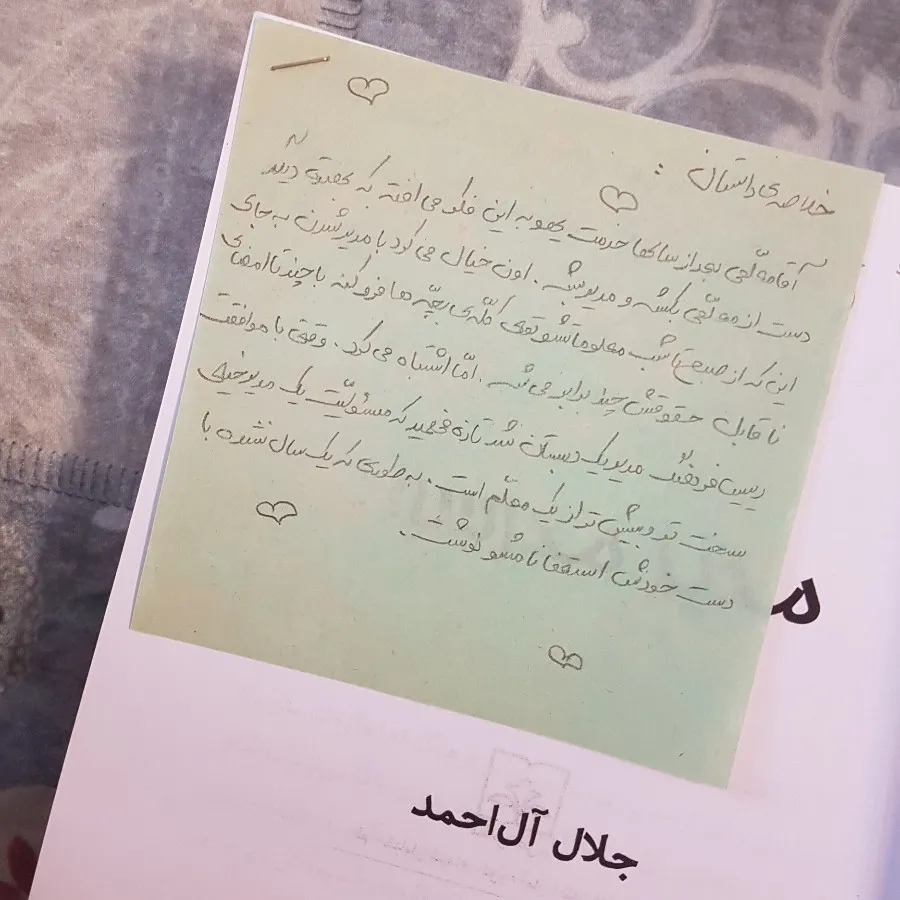 خلاصه‌ی داستان :
آقا معلّمی بعد از سالها خدمت یهو به این فکر می افته که بهتره دیگه
دست از معلّمی بکشه و مدیر بشه . اون خیال می کرد با مدیر شدن به جای
این که از صبح تا شب معلوماتشو توی کلّه ی بچّه ها فرو کنه با چند تا امضای
نا قابل حقوقش چند برابر می شه . امّا اشتباه می کرد . وقتی با موافقت
رییس فرهنگ مدیر یک دبستان شد تازه فهمید که مسئولیّت یک مدیر خیلی
سخت تر و بیش تر از یک معلّم است . به طوری که یک سال نشده با
دست خودش استعفا نامشو نوشت .
م
جلال آل‌احمد